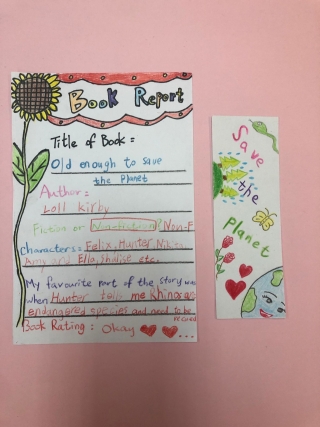 Book Report
Title of Book =
Old enough to save
the Planet
Author =
Loll Kirby
Fiction or Non-fiction? Non-F
Characters = Felix, Hunter, Nikita
Amy and Ella, Shalise etc.
My favourite part of the story was
when Hunter tells me Rhinos are
endangered special and need to be
Book Rating : Okay
Save
the
Planet